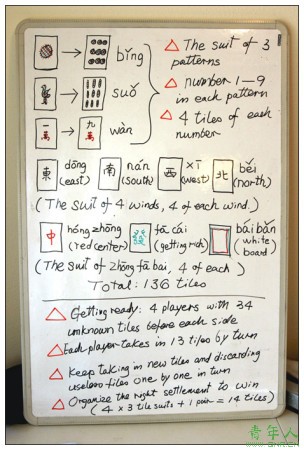 → bǐng
△ The suit of 3
patterns
→ suǒ
△ number 1—9
in each pattern
一萬 → 九萬 wàn
△ 4 tiles of each
number
東 dōng
(east)
南 nán
(south)
西 xī
(west)
北 běi
(north)
(The suit of 4 winds, 4 of each wind.)
中 hóng zhōng
(red center)
發 fā cái
(getting rich)
bái bǎn
white
board
(The suit of zhōng fa bai, 4 of each)
Total: 136 tiles
△ Getting ready: 4 players with 34
unknown tiles before each side
△ Each player takes in 13 tiles by turn
△ Keep taking in new tiles and discarding
useless tiles one by one in turn
△ Organize the right settlement to win
(4 x 3 tile suits + 1 pair = 14 tiles)
青年人